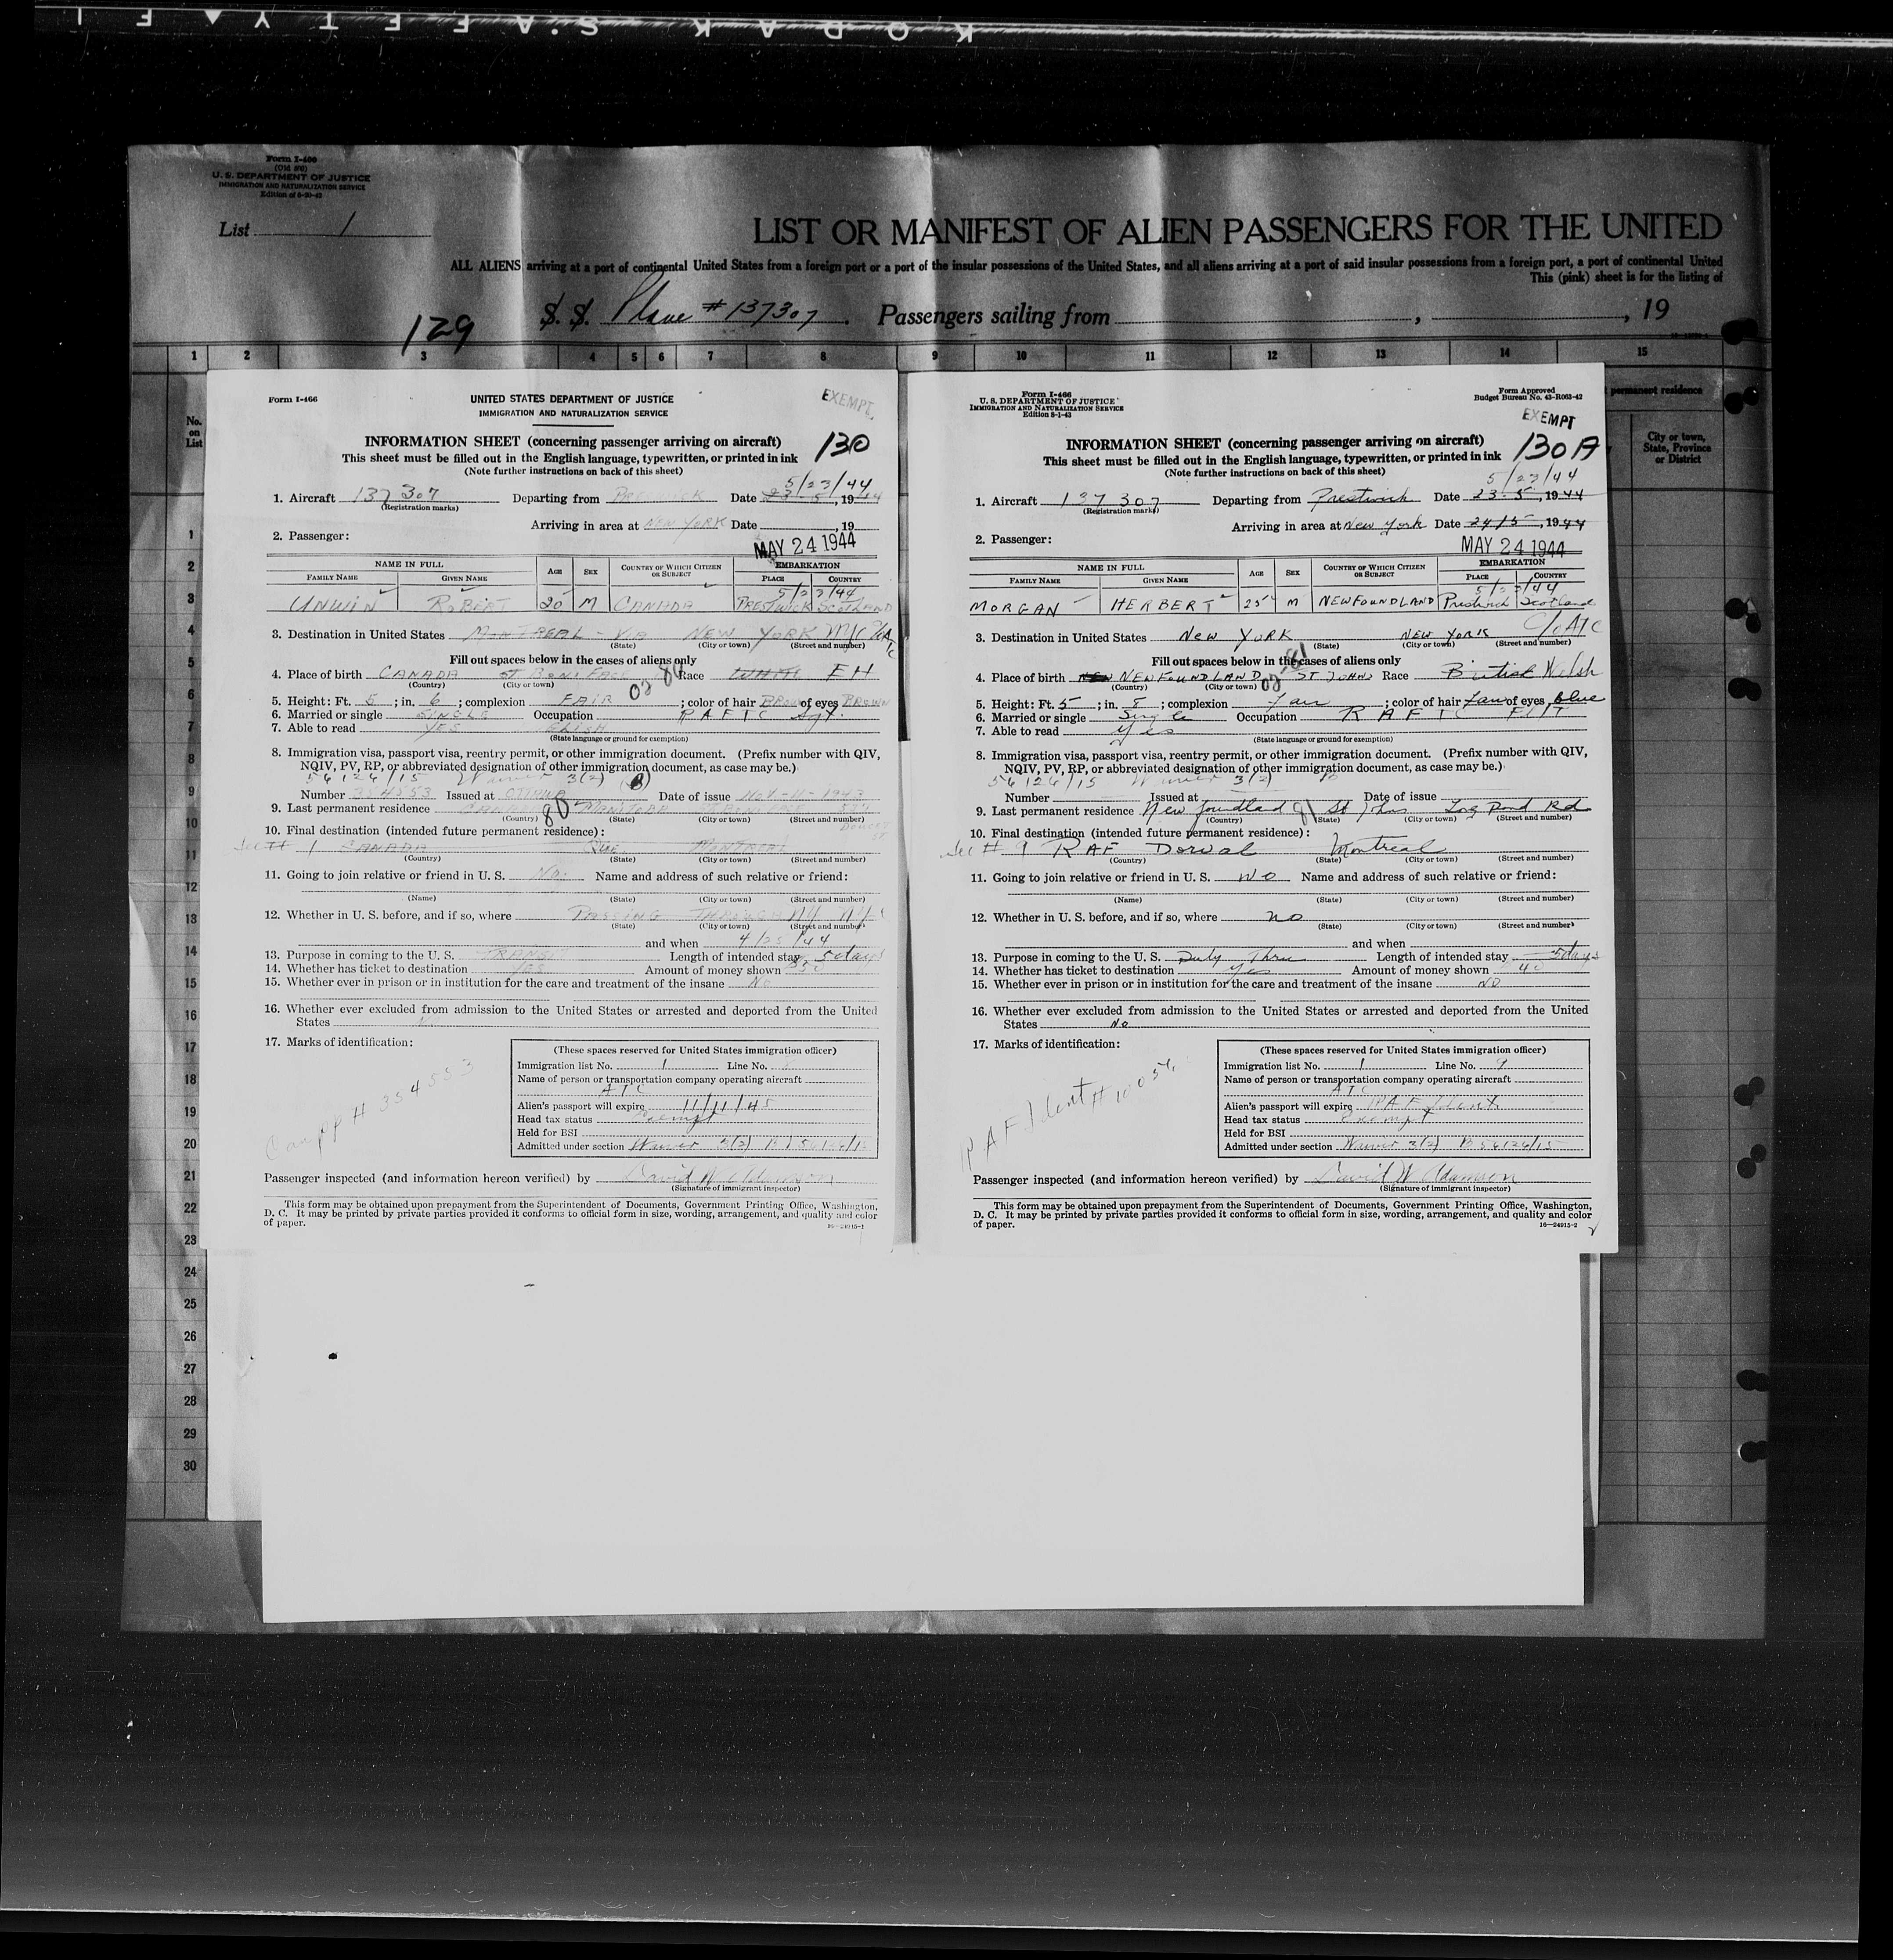 KODAK SAFETY
Form I-466
(Old 500)
U. S. DEPARTMENT OF JUSTICE
IMMIGRATION AND NATURALIZATION SERVICE
List 1
LIST OR MANIFEST OF ALIEN PASSENGERS FOR THE UNITED
ALL ALIENS arriving at a port of continental United States from a foreign port or a port of the insular possessions of the United States, and all aliens arriving at a port of said insular possessions from a foreign port, a port of continental United
This (pink) sheet is for the listing of
129 S. S. Plane # 137307. Passengers sailing from , , 19
1 2 3 4 5 6 7 8 9 10 11 12 13 14 15
permanent residence
No. on List
City or town, State, Province or District
1
2
3
4
5
6
7
8
9
10
11
12
13
14
15
16
17
18
19
20
21
22
23
24
25
26
27
28
29
30
Form I-466
UNITED STATES DEPARTMENT OF JUSTICE
IMMIGRATION AND NATURALIZATION SERVICE
EXEMPT
INFORMATION SHEET (concerning passenger arriving on aircraft)
130
This sheet must be filled out in the English language, typewritten, or printed in ink
(Note further instructions on back of this sheet)
5/23/44
1. Aircraft 137307 Departing from PRESTWICK Date 23-5, 1944
(Registration marks)
Arriving in area at NEW YORK Date , 19
2. Passenger:
MAY 24 1944
NAME IN FULL AGE SEX COUNTRY OF WHICH CITIZEN OR SUBJECT EMBARKATION
FAMILY NAME GIVEN NAME PLACE COUNTRY
5/23/44
UNWIN ROBERT 20 M CANADA PRESTWICK SCOTLAND
3. Destination in United States MONTREAL - VIA NEW YORK NYC % ATC
(State) (City or town) (Street and number)
Fill out spaces below in the cases of aliens only
4. Place of birth CANADA ST. BONIFACE Race WHITE EH
(Country) (City or town)
02 80
5. Height: Ft. 5; in. 6; complexion FAIR; color of hair BROWN of eyes BROWN
6. Married or single SINGLE Occupation RAFTC Sgt.
7. Able to read YES
(State language or ground for exemption)
8. Immigration visa, passport visa, reentry permit, or other immigration document. (Prefix number with QIV,
NQIV, PV, RP, or abbreviated designation of other immigration document, as case may be.)
56126/15 Waiver 3(2) (B)
Number 354553 Issued at OTTAWA Date of issue NOV-11-1943
9. Last permanent residence CANADA 80 MANITOBA ST. BONIFACE
(Country) (State) (City or town) (Street and number)
10. Final destination (intended future permanent residence):
Sec # 1 CANADA QUE. MONTREAL
(Country) (State) (City or town) (Street and number)
11. Going to join relative or friend in U. S. No. Name and address of such relative or friend:
(Name) (State) (City or town) (Street and number)
12. Whether in U. S. before, and if so, where PASSING THROUGH NY NY
(State) (City or town) (Street and number)
and when 4/25/44
13. Purpose in coming to the U. S. TRANSIT Length of intended stay 5 days
14. Whether has ticket to destination YES Amount of money shown $50
15. Whether ever in prison or in institution for the care and treatment of the insane No
16. Whether ever excluded from admission to the United States or arrested and deported from the United
States
17. Marks of identification:
Can PP # 354553
(These spaces reserved for United States immigration officer)
Immigration list No. 1 Line No.
Name of person or transportation company operating aircraft
ATC
Alien's passport will expire 11/11/45
Head tax status Exempt
Held for BSI
Admitted under section Waiver 3(2) B 56126/15
Passenger inspected (and information hereon verified) by David W Adamson
(Signature of immigrant inspector)
This form may be obtained upon prepayment from the Superintendent of Documents, Government Printing Office, Washington,
D. C. It may be printed by private parties provided it conforms to official form in size, wording, arrangement, and quality and color
of paper.
16—24915-1
Form I-466
U. S. DEPARTMENT OF JUSTICE
IMMIGRATION AND NATURALIZATION SERVICE
Edition 8-1-43
Form Approved
Budget Bureau No. 43-R063-42
EXEMPT
INFORMATION SHEET (concerning passenger arriving on aircraft)
130A
This sheet must be filled out in the English language, typewritten, or printed in ink
(Note further instructions on back of this sheet)
5/23/44
1. Aircraft 137307 Departing from Prestwick Date 23-5, 1944
(Registration marks)
Arriving in area at New York Date 24/5, 1944
2. Passenger:
MAY 24 1944
NAME IN FULL AGE SEX COUNTRY OF WHICH CITIZEN OR SUBJECT EMBARKATION
FAMILY NAME GIVEN NAME PLACE COUNTRY
5/23/44
MORGAN HERBERT 25 M NEWFOUNDLAND Prestwick Scotland
3. Destination in United States New YORK NEW YORK C/o ATC
(State) (City or town) (Street and number)
Fill out spaces below in the cases of aliens only
4. Place of birth NEWFOUNDLAND ST JOHNS Race British Welsh
(Country) (City or town)
02 81
5. Height: Ft. 5; in. 5; complexion Fair; color of hair Fair of eyes blue
6. Married or single Single Occupation RAFTC Fl/T
7. Able to read Yes
(State language or ground for exemption)
8. Immigration visa, passport visa, reentry permit, or other immigration document. (Prefix number with QIV,
NQIV, PV, RP, or abbreviated designation of other immigration document, as case may be.)
56126/15 Waiver 3(2) B
Number Issued at Date of issue
9. Last permanent residence New Foundland 81 St Johns Long Pond Rd
(Country) (State) (City or town) (Street and number)
10. Final destination (intended future permanent residence):
Sec # 9 RAF Dorval Montreal
(Country) (State) (City or town) (Street and number)
11. Going to join relative or friend in U. S. No Name and address of such relative or friend:
(Name) (State) (City or town) (Street and number)
12. Whether in U. S. before, and if so, where no
(State) (City or town) (Street and number)
and when
13. Purpose in coming to the U. S. Duty Thru Length of intended stay 5 days
14. Whether has ticket to destination Yes Amount of money shown 40
15. Whether ever in prison or in institution for the care and treatment of the insane NO
16. Whether ever excluded from admission to the United States or arrested and deported from the United
States No
17. Marks of identification:
RAF Ident # 10056
(These spaces reserved for United States immigration officer)
Immigration list No. 1 Line No. 9
Name of person or transportation company operating aircraft
ATC
Alien's passport will expire RAF Ident
Head tax status Exempt
Held for BSI
Admitted under section Waiver 3(2) B 56126/15
Passenger inspected (and information hereon verified) by David W Adamson
(Signature of immigrant inspector)
This form may be obtained upon prepayment from the Superintendent of Documents, Government Printing Office, Washington,
D. C. It may be printed by private parties provided it conforms to official form in size, wording, arrangement, and quality and color
of paper.
16—24915-2